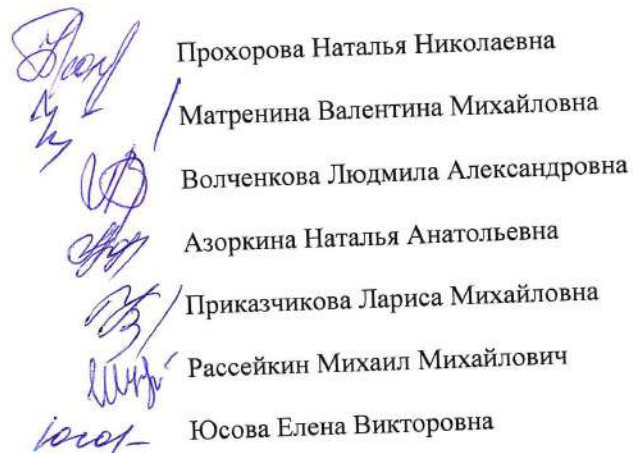 Прохорова Наталья Николаевна
Матренина Валентина Михайловна
Волченкова Людмила Александровна
Азоркина Наталья Анатольевна
Приказчикова Лариса Михайловна
Рассейкин Михаил Михайлович
Юсова Елена Викторовна